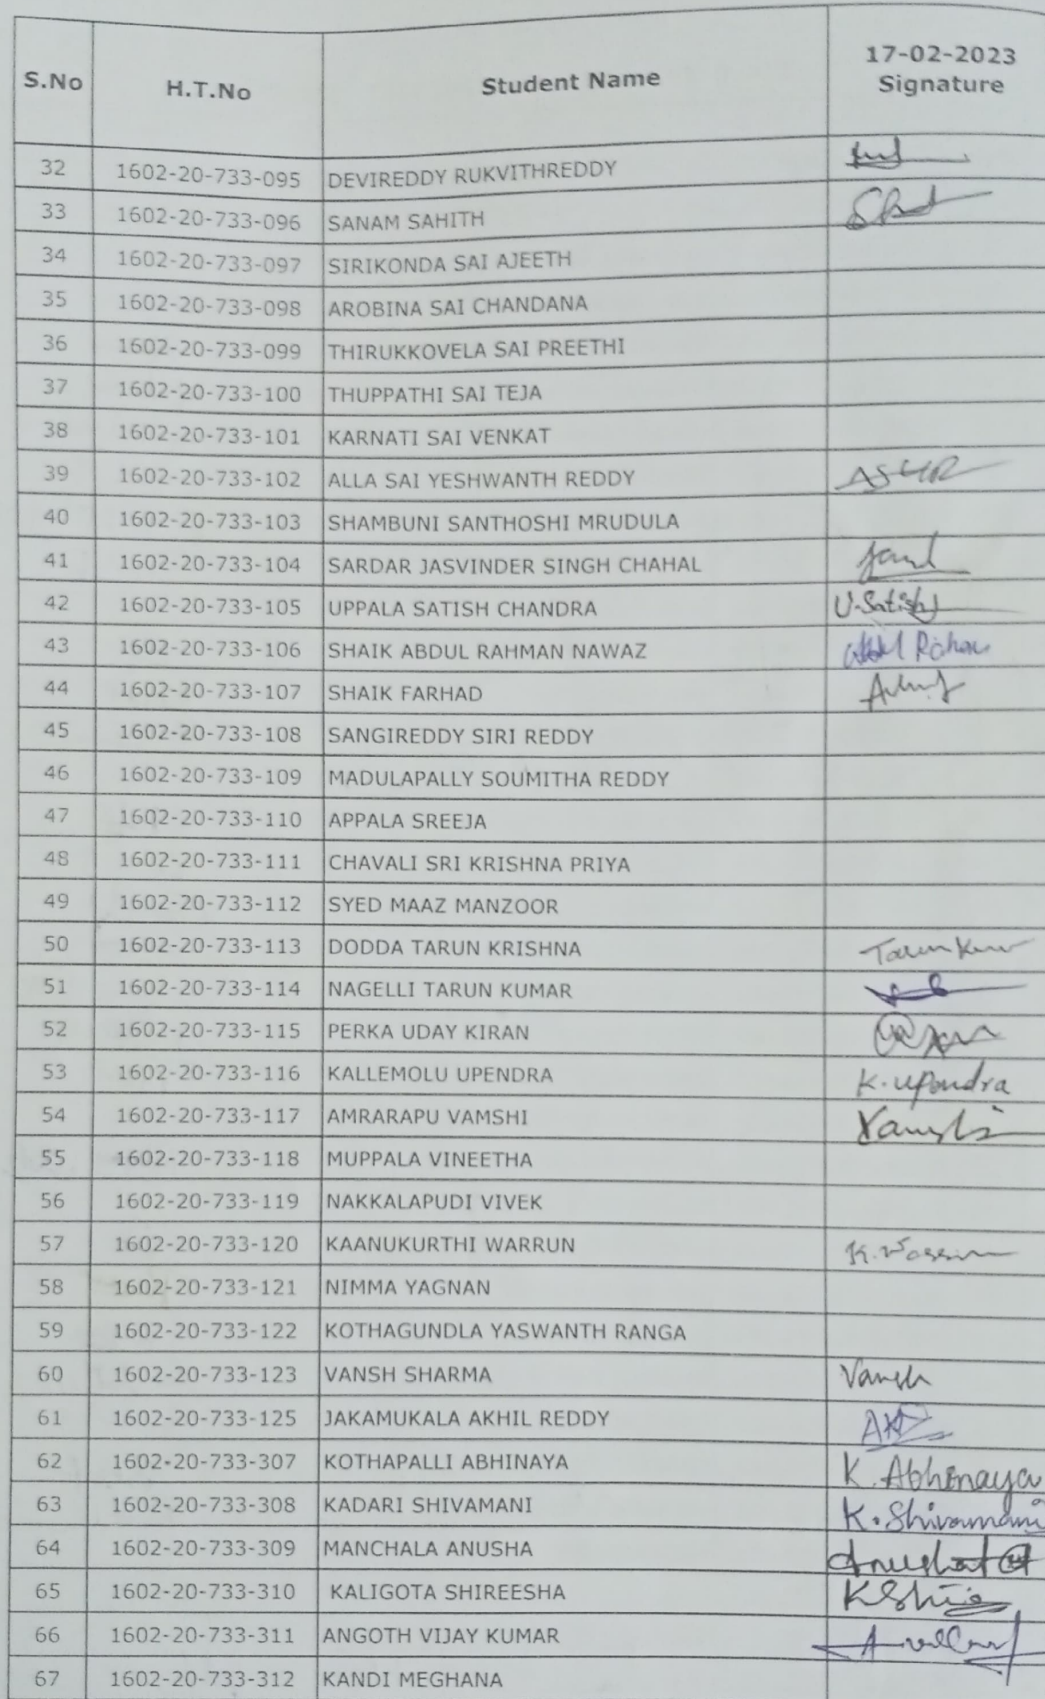 S.No H.T.No Student Name 17-02-2023 Signature
32 1602-20-733-095 DEVIREDDY RUKVITHREDDY
33 1602-20-733-096 SANAM SAHITH
34 1602-20-733-097 SIRIKONDA SAI AJEETH
35 1602-20-733-098 AROBINA SAI CHANDANA
36 1602-20-733-099 THIRUKKOVELA SAI PREETHI
37 1602-20-733-100 THUPPATHI SAI TEJA
38 1602-20-733-101 KARNATI SAI VENKAT
39 1602-20-733-102 ALLA SAI YESHWANTH REDDY ASYR
40 1602-20-733-103 SHAMBUNI SANTHOSHI MRUDULA
41 1602-20-733-104 SARDAR JASVINDER SINGH CHAHAL
42 1602-20-733-105 UPPALA SATISH CHANDRA U.Satish
43 1602-20-733-106 SHAIK ABDUL RAHMAN NAWAZ
44 1602-20-733-107 SHAIK FARHAD
45 1602-20-733-108 SANGIREDDY SIRI REDDY
46 1602-20-733-109 MADULAPALLY SOUMITHA REDDY
47 1602-20-733-110 APPALA SREEJA
48 1602-20-733-111 CHAVALI SRI KRISHNA PRIYA
49 1602-20-733-112 SYED MAAZ MANZOOR
50 1602-20-733-113 DODDA TARUN KRISHNA Tarun
51 1602-20-733-114 NAGELLI TARUN KUMAR
52 1602-20-733-115 PERKA UDAY KIRAN
53 1602-20-733-116 KALLEMOLU UPENDRA K.upendra
54 1602-20-733-117 AMRARAPU VAMSHI Vamshi
55 1602-20-733-118 MUPPALA VINEETHA
56 1602-20-733-119 NAKKALAPUDI VIVEK
57 1602-20-733-120 KAANUKURTHI WARRUN
58 1602-20-733-121 NIMMA YAGNAN
59 1602-20-733-122 KOTHAGUNDLA YASWANTH RANGA
60 1602-20-733-123 VANSH SHARMA Vansh
61 1602-20-733-125 JAKAMUKALA AKHIL REDDY
62 1602-20-733-307 KOTHAPALLI ABHINAYA K.Abhinaya
63 1602-20-733-308 KADARI SHIVAMANI K.Shivamani
64 1602-20-733-309 MANCHALA ANUSHA
65 1602-20-733-310 KALIGOTA SHIREESHA
66 1602-20-733-311 ANGOTH VIJAY KUMAR
67 1602-20-733-312 KANDI MEGHANA